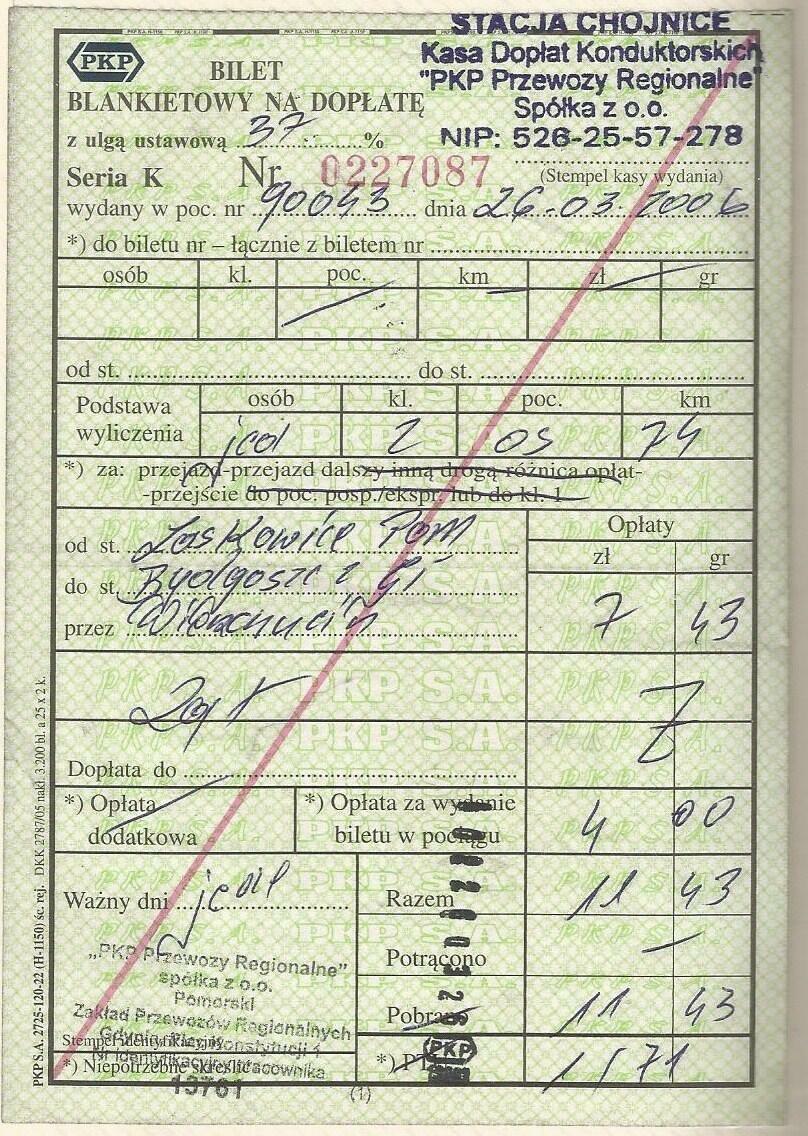 STACJA CHOJNICE
Kasa Dopłat Konduktorskich
"PKP Przewozy Regionalne"
Spółka z o.o.
NIP: 526-25-57-278
PKP
BILET
BLANKIETOWY NA DOPŁATĘ
z ulgą ustawową 37 %
Seria K Nr 0227087 (Stempel kasy wydania)
wydany w poc. nr 90043 dnia 26-03-2006
*) do biletu nr – łącznie z biletem nr
osób kl. poc. km zł gr
od st. do st.
Podstawa wyliczenia
osób kl. poc. km
jed 2 os 74
*) za: przejazd-przejazd dalszy inną drogą-różnica opłat-
-przejście do poc. posp./ekspr. lub do kl. 1
Opłaty
zł gr
od st. Laskowice Pom
do st. Bydgoszcz Gł
przez Wierzchucin
7 43
Dopłata do
*) Opłata dodatkowa
*) Opłata za wydanie biletu w pociągu
4 00
Ważny dni jed
Razem 11 43
Potrącono —
Pobrano 11 43
*) PTU 1 71
„PKP Przewozy Regionalne”
spółka z o.o.
Pomorski
Zakład Przewozów Regionalnych
Gdynia Pl. Konstytucji 1
Stempel identyfikacyjny
Nr identyfikacyjny pracownika
*) Niepotrzebne skreślić
13701
PKP
(1)
PKP S.A. 2725-120-22 (H-1150) śc. rej. DKK 2787/05 nakł. 3.200 bl. a 25 x 2 k.